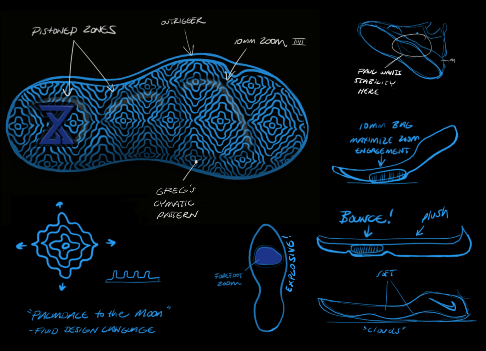 PISTONED ZONES
OUTRIGGER
10MM ZOOM
GREG'S
CYMATIC
PATTERN
STABILITY
HERE
10MM BAG
MAXIMIZE ZOOM
ENGAGEMENT
BOUNCE!
plush
SOFT
"CLOUDS"
FOREFOOT
ZOOM
EXPLOSIVE!
"PALMDALE to the MOON"
-FLUID DESIGN LANGUAGE